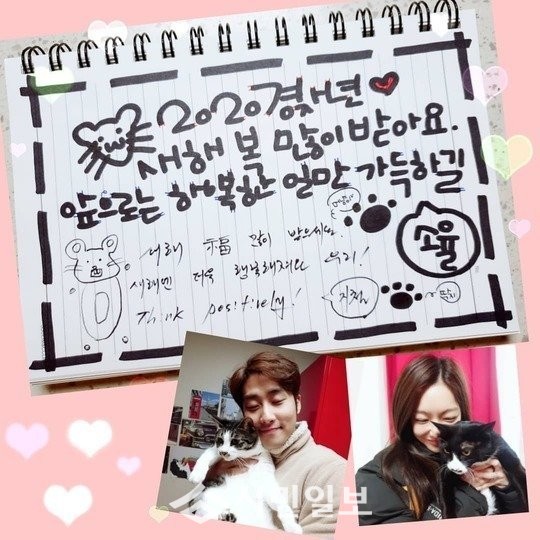 2020경자년
새해 복 많이 받아요.
앞으로는 행복한 일만 가득하길
소율
새해 福 많이 받으세요
새해엔 더욱 행복해져요 우리!
Think positively!
시민일보